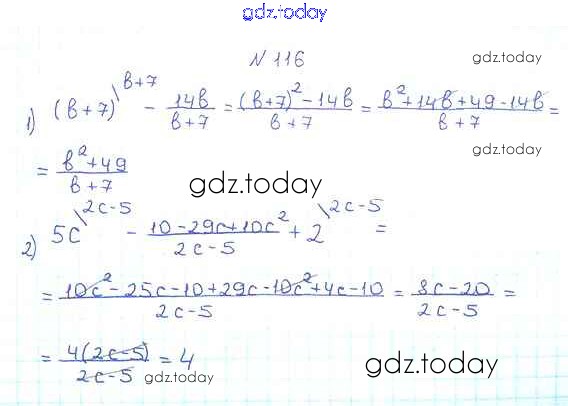 gdz.today
N 116
gdz.today
1) (b+7)\b+7 - 14b/(b+7) = ((b+7)² - 14b)/(b+7) = (b² + 14b + 49 - 14b)/(b+7) =
gdz.today
= (b² + 49)/(b+7)
gdz.today
2) 5c\2c-5 - (10 - 29c + 10c²)/(2c-5) + 2\2c-5 =
= (10c² - 25c - 10 + 29c - 10c² + 4c - 10)/(2c-5) = (8c-20)/(2c-5) =
= 4(2c-5)/(2c-5) = 4
gdz.today
gdz.today